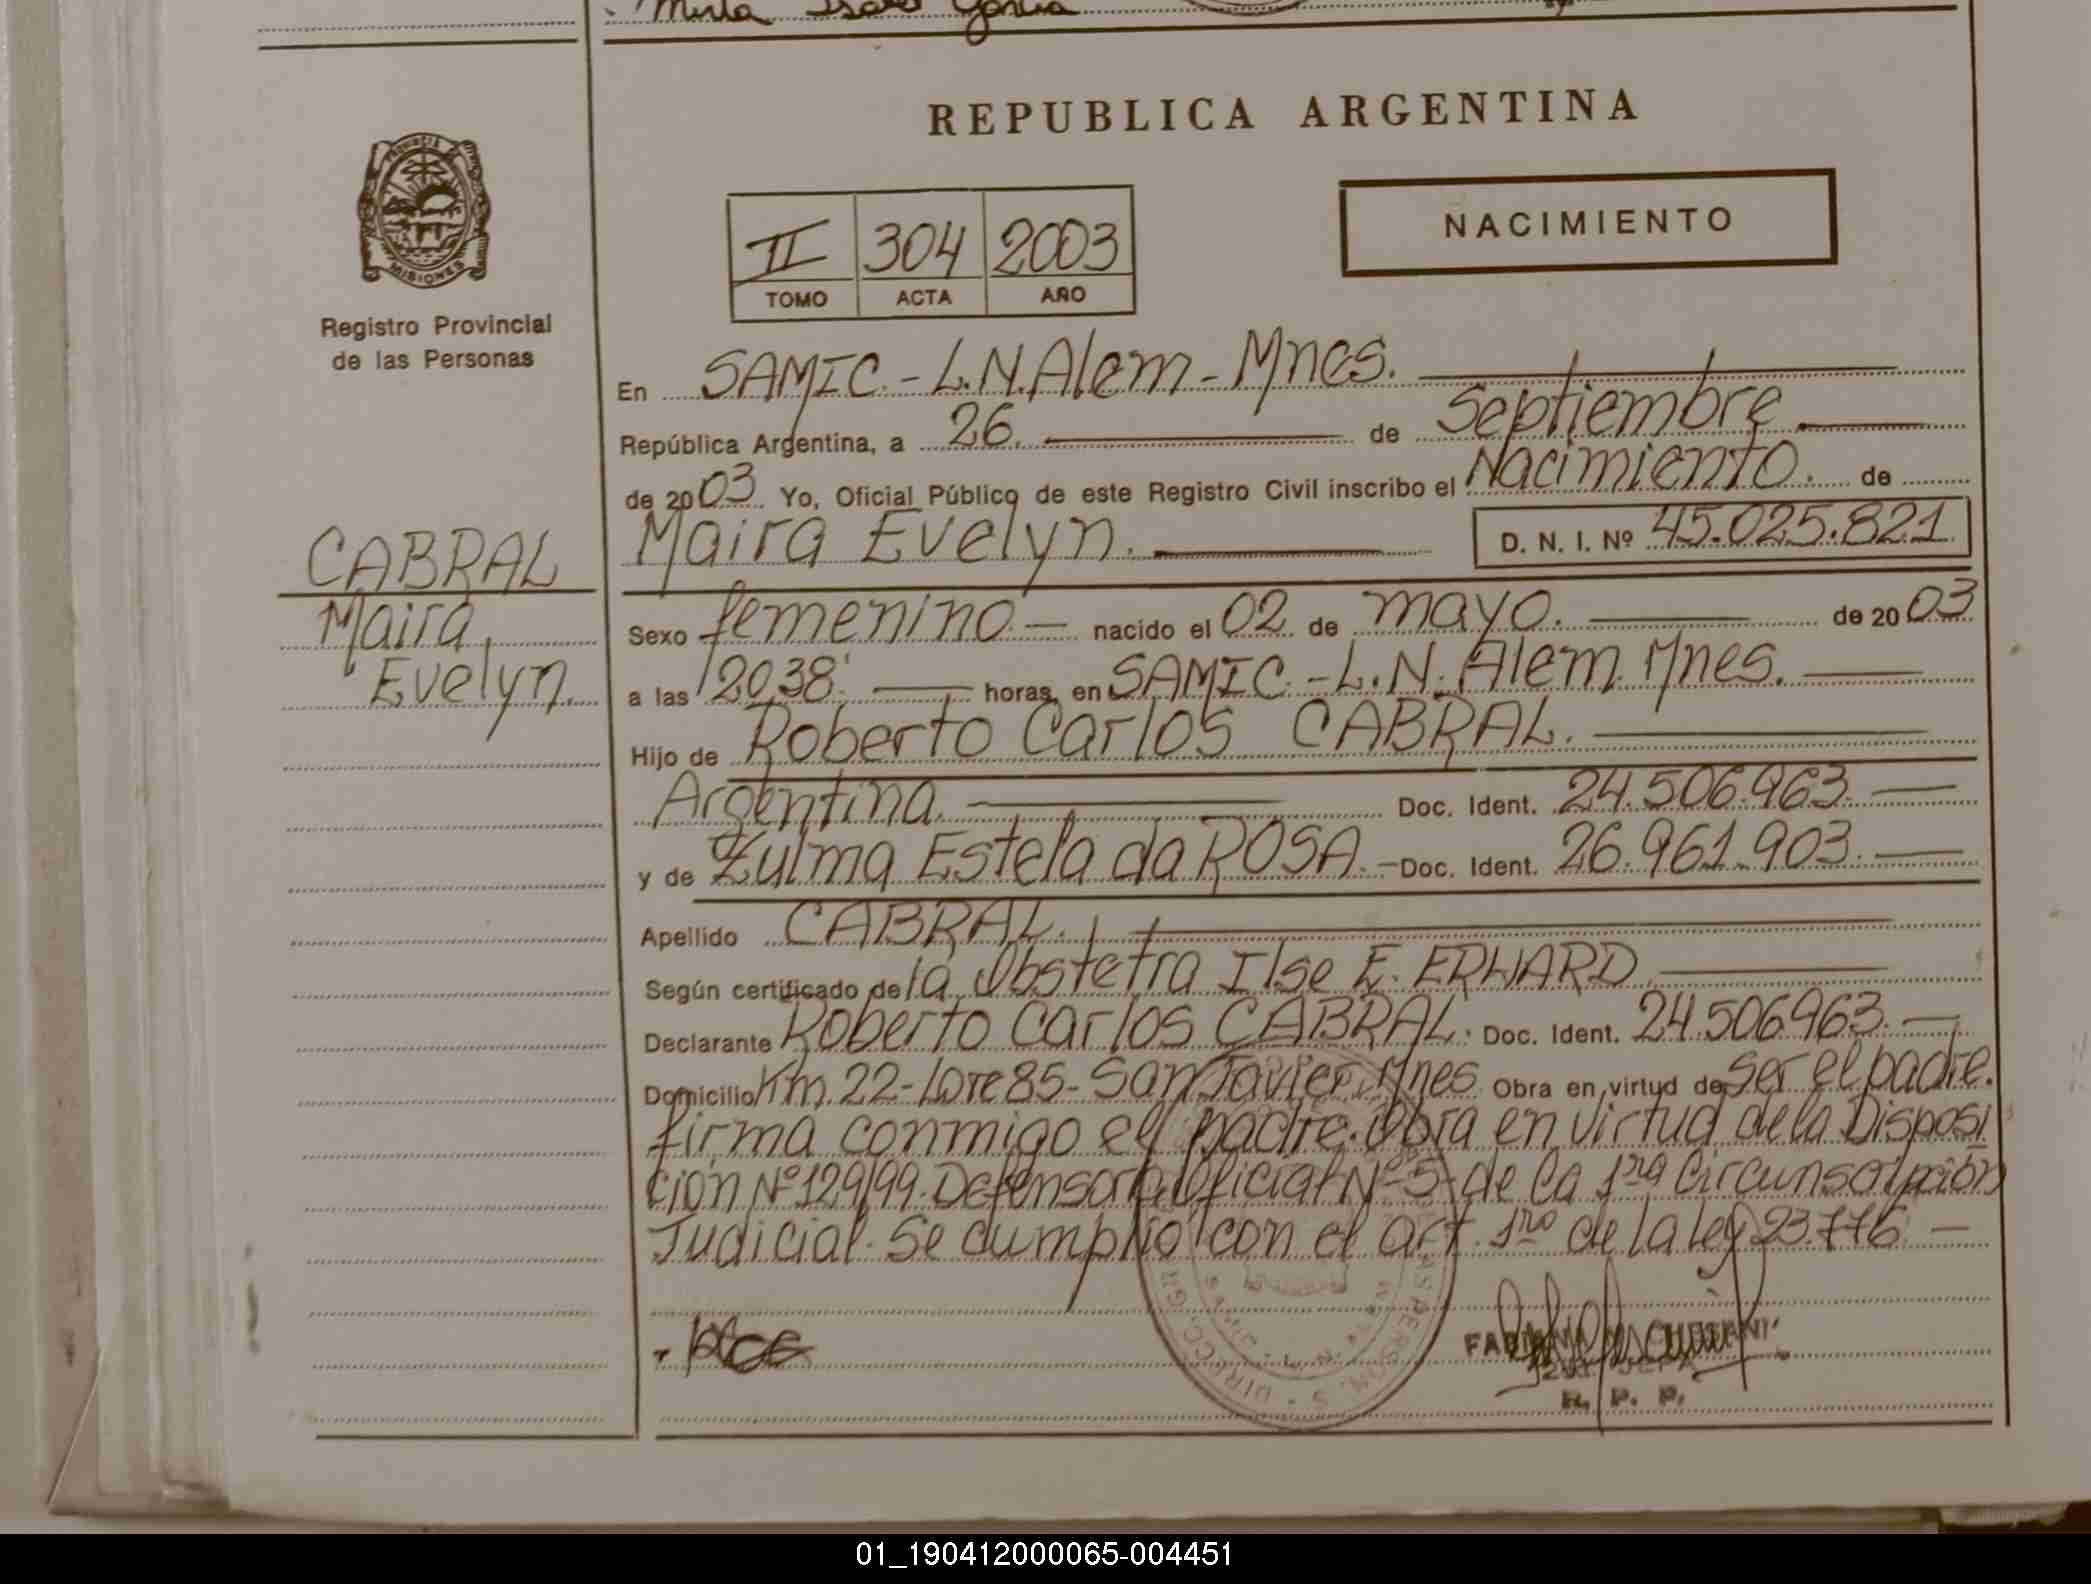 Mirta Isabel Garcia
REPUBLICA ARGENTINA
PROVINCIA DE
MISIONES
Registro Provincial
de las Personas
II 304 2003
TOMO ACTA AÑO
NACIMIENTO
En SAMIC.-L.N.Alem-Mnes.
República Argentina, a 26. de Septiembre
de 2003 Yo, Oficial Público de este Registro Civil inscribo el Nacimiento. de
Maira Evelyn. D. N. I. Nº 45.025.821
CABRAL
Maira
Evelyn.
Sexo femenino.- nacido el 02 de mayo. de 2003
a las 20,38' horas, en SAMIC.-L.N.Alem.Mnes.
Hijo de Roberto Carlos CABRAL.
Argentina. Doc. Ident. 24.506.963.
y de Zulma Estela da ROSA.- Doc. Ident. 26.961.903.
Apellido CABRAL.
Según certificado de la Obstetra Ilse E. ERHARD
Declarante Roberto Carlos CABRAL. Doc. Ident. 24.506963.-
Domicilio Km.22-Lote 85-San Javier,Mnes. Obra en virtud de ser el padre.
firma conmigo el padre. Obra en virtud de la Disposi
ción Nº129/99.Defensoría Oficial Nº-5-de la 1ra Circunscripción
Judicial. Se cumplió con el art. 1ro de la ley 23.776.-
R. P. P.
01_190412000065-004451